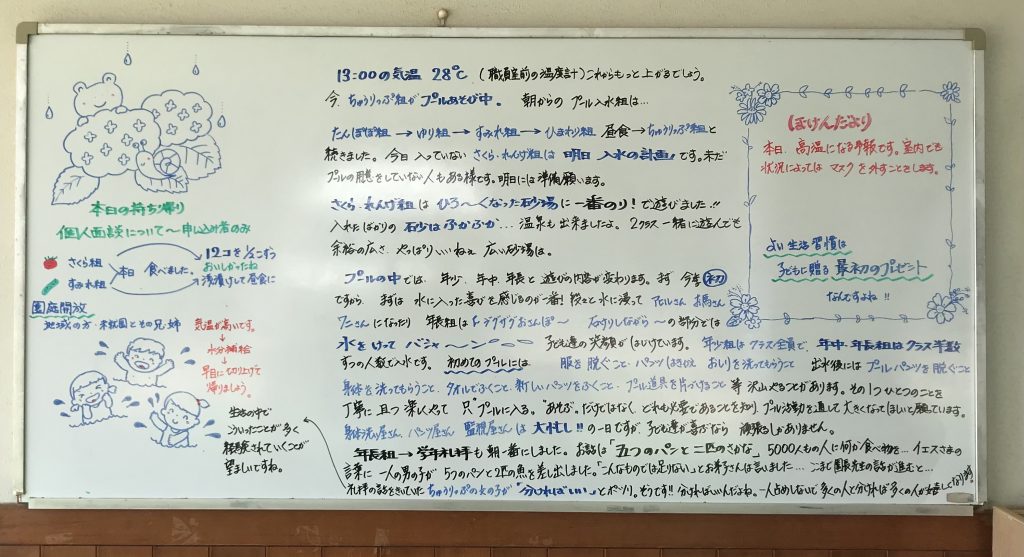 本日の持ち帰り
個人面談について〜申し込み者のみ
さくら組
すみれ組
本日 食べました。
12コを ½こずつ
おいしかったね
浅漬けして昼食に
園庭開放
地域の方・未就園とその兄姉
気温が高いです。
↓
水分補給
↓
早目に切り上げて
帰りましょう。
生活の中で
こういったことが多く
経験されていくことが
望ましいですね。
13:00の気温 28℃ (職員室前の温度計)これからもっと上がるでしょう。
今、ちゅうりっぷ組がプールあそび中。 朝からの プール入水組は…
たんぽぽ組 → ゆり組 → すみれ組 → ひまわり組 昼食 → ちゅうりっぷ組と
続きました。今日 入っていない さくら・れんげ組は 明日 入水の計画です。未だ
プールの用意をしていない人もある様です。明日には準備願います。
さくら・れんげ組は ひろ〜くなった砂場に一番のり!で遊びました!!
入れたばかりの 石少はふかふか… 温泉も出来ましたよ。2クラス一緒に遊んでも
余裕の広さ。やっぱり、いいねぇ 広い砂場は。
プールの中では、年少、年中、年長と 遊びの内容が変わります。まず 今季 初
ですから まずは 水に入った喜びを感じるのが一番! 段々と水に浸って アヒルさん お馬さん
ワニさんになったり 年長組は
水をけって バシャ〜ン 子ども達の笑顔がはじけています。年少組はクラス全員で、年中・年長組はクラス半数
ずつの人数で入水です。初めてのプールには 服を脱ぐこと・パンツはきかえ おしりを洗ってもらうこと 出水後には プールパンツを脱ぐこと
身体を洗ってもらうこと、タオルでふくこと、新しいパンツをはくこと・プール道具を片づけること 等 沢山やることがあります。その1つひとつのことを
丁寧に 且つ 楽しんで 只"プールに入る。"あそぶ"だけではなく、どれも必要であることを知り、プール活動を通して 大きくなってほしいと願っています。
身体洗い屋さん、パンツ屋さん 監視屋さんは 大忙し!!の一日ですが、子ども達が喜ぶなら 頑張るしかありません。
年長組 → 学年礼拝も 朝一番にしました。お話は「五つのパンと二匹のさかな」5000人もの人に何か食べ物を… イエスさまの
言葉に 一人の男の子が 5つのパンと2匹の魚を差し出しました。「こんなものでは足りない」とお弟子さんは言いました… ここまで園長先生の話が進むと…
礼拝の話をきいていた ちゅうりっぷの女の子が「分ければいい」とポツリ。そうです!! 分ければいいんだよね。一人占めしないで多くの人と分ければ多くの人が嬉しくなります
ほけんだより
本日、高温になる予報です。室内でも
状況によっては マスクを外すことをします。
よい生活習慣は
子どもに贈る 最初のプレゼント
なんですよね!!